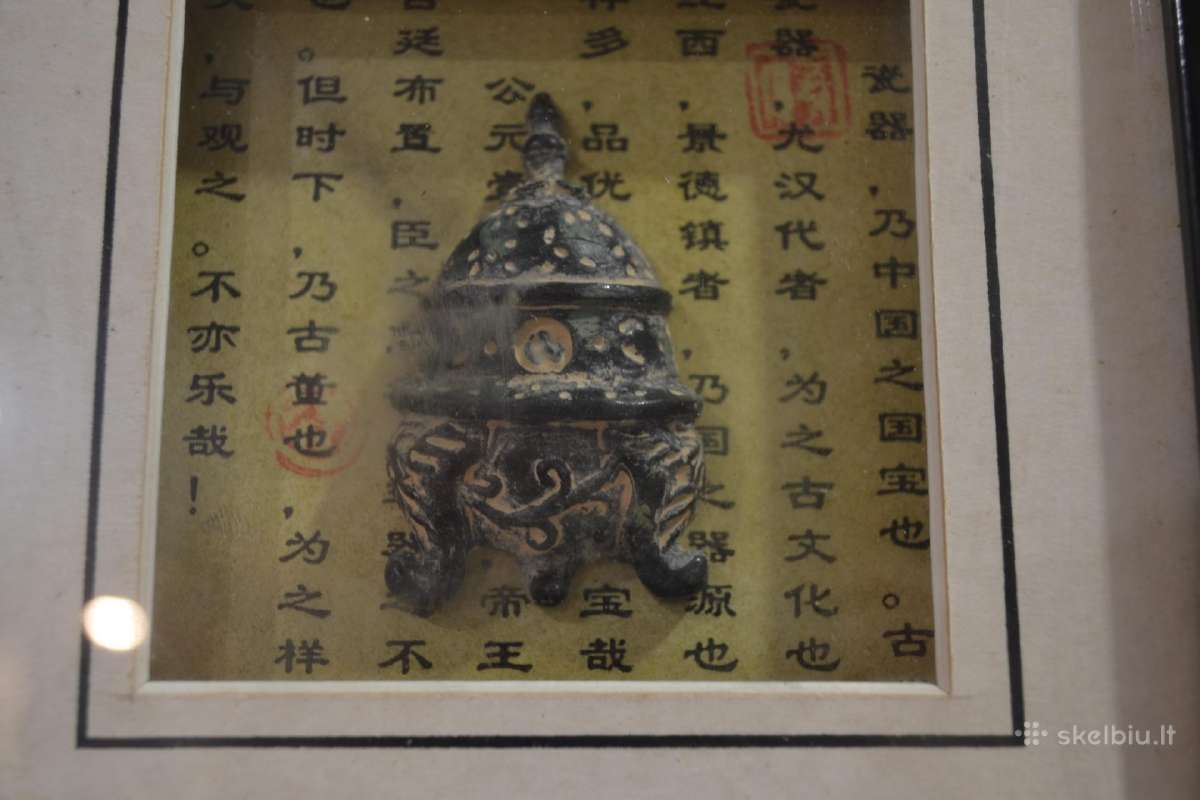 瓷器，乃中国之国宝也。古
器，尤汉代者，为之古文化也
西，景德镇者，乃国之器源也
多，品优宝哉
公元帝王
廷布置，臣之不
。但时下，乃古董也，为之样
，与观之。不亦乐哉！
skelbiu.lt